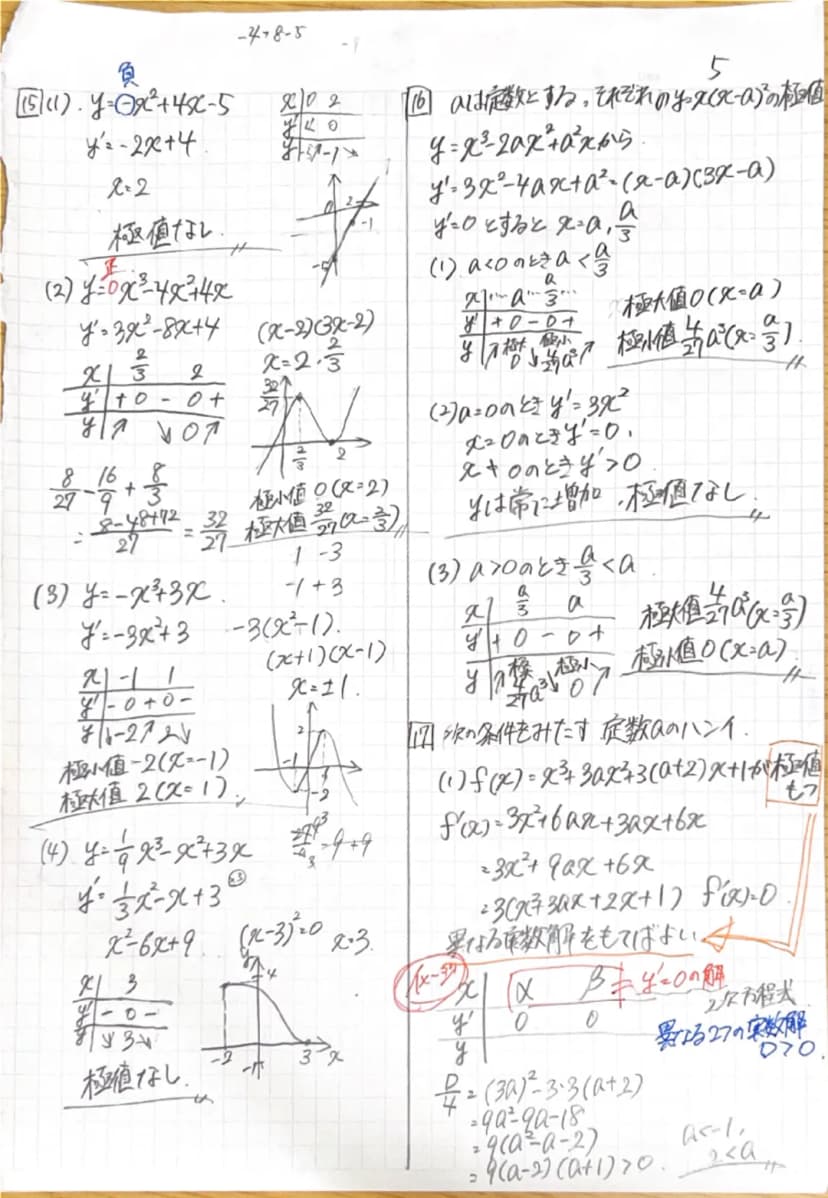 -4+8-5
5
15 (1). y=-x²+4x-5
負
y'=-2x+4
x=2
極値なし
x 0 2
y' 0
y -5↗-1↘
0 2
-1
-5
(2) y=0x³-4x²+4x
正
y'=3x²-8x+4
(x-2)(3x-2)
x=2・2/3
x 2/3 2
y' +0-0+
y ↗ ↘0↗
32/27
2/3 2
8/27-16/9+8/3
=8-48+72/27=32/27
極小値 0(x=2)
極大値 32/27(x=2/3)
1 -3
-1+3
(3) y=-x³+3x
y'=-3x²+3 -3(x²-1).
(x+1)(x-1)
x=±1
x -1 1
y' -0+0-
y ↘-2↗2↘
2
-2
極小値 -2(x=-1)
極大値 2(x=1)
(4) y=1/9x³-x²+3x
-9+9
y'=1/3x²-x+3
x²-6x+9 (x-3)²=0 x=3
x 3
y' -0-
y ↘3↘
y 4
-2 3 x
極値なし
16 aは定数とする。それぞれのy=x(x-a)²の極値
y=x³-2ax²+a²xから
y'=3x²-4ax+a²=(x-a)(3x-a)
y'=0とするとx=a,a/3
(1) a<0のときa<a/3
x …a…a/3…
y' +0-0+
y ↗極大0↘極小4/27a³↗
極大値0(x=a)
極小値4/27a³(x=a/3)
(2)a=0のときy'=3x²
x=0のときy'=0,
x≠0のときy'>0
yは常に増加,極値なし
(3) a>0のときa/3<a
x a/3 a
y' +0-0+
y ↗極4/27a³↘極小0↗
極大値4/27a³(x=a/3)
極小値0(x=a)
17 次の条件をみたす 定数aのハンイ.
(1) f(x)=x³+3ax²+3(a+2)x+1が極値もつ
f'(x)=3x²+6ax+3ax+6x
=3x²+9ax+6x
=3(x²+3ax+2x+1) f'(x)=0
異なる実数解をもてばよい
x α β
y'=0の解
y' 0 0
2次方程式
y
異なる2つの実数解
D>0
D/4=(3a)²-3・3(a+2)
=9a²-9a-18
=9(a²-a-2)
=9(a-2)(a+1)>0.
a<-1,
2<a